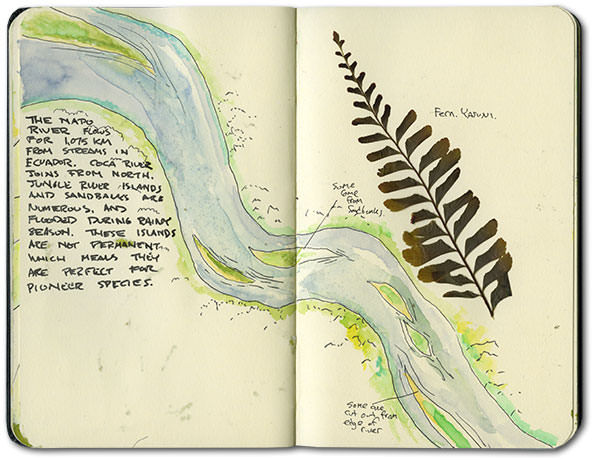 THE NAPO
RIVER FLOWS
FOR 1,075 KM
FROM STREAMS IN
ECUADOR. COCA RIVER
JOINS FROM NORTH.
JUNGLE RIVER ISLANDS
AND SANDBANKS ARE
NUMEROUS, AND
FLOODED DURING RAINY
SEASON. THESE ISLANDS
ARE NOT PERMANENT
WHICH MEANS THEY
ARE PERFECT FOR
PIONEER SPECIES.
Fern.
Some
come
from
Sandbanks.
Some are
cut out from
edge of
river